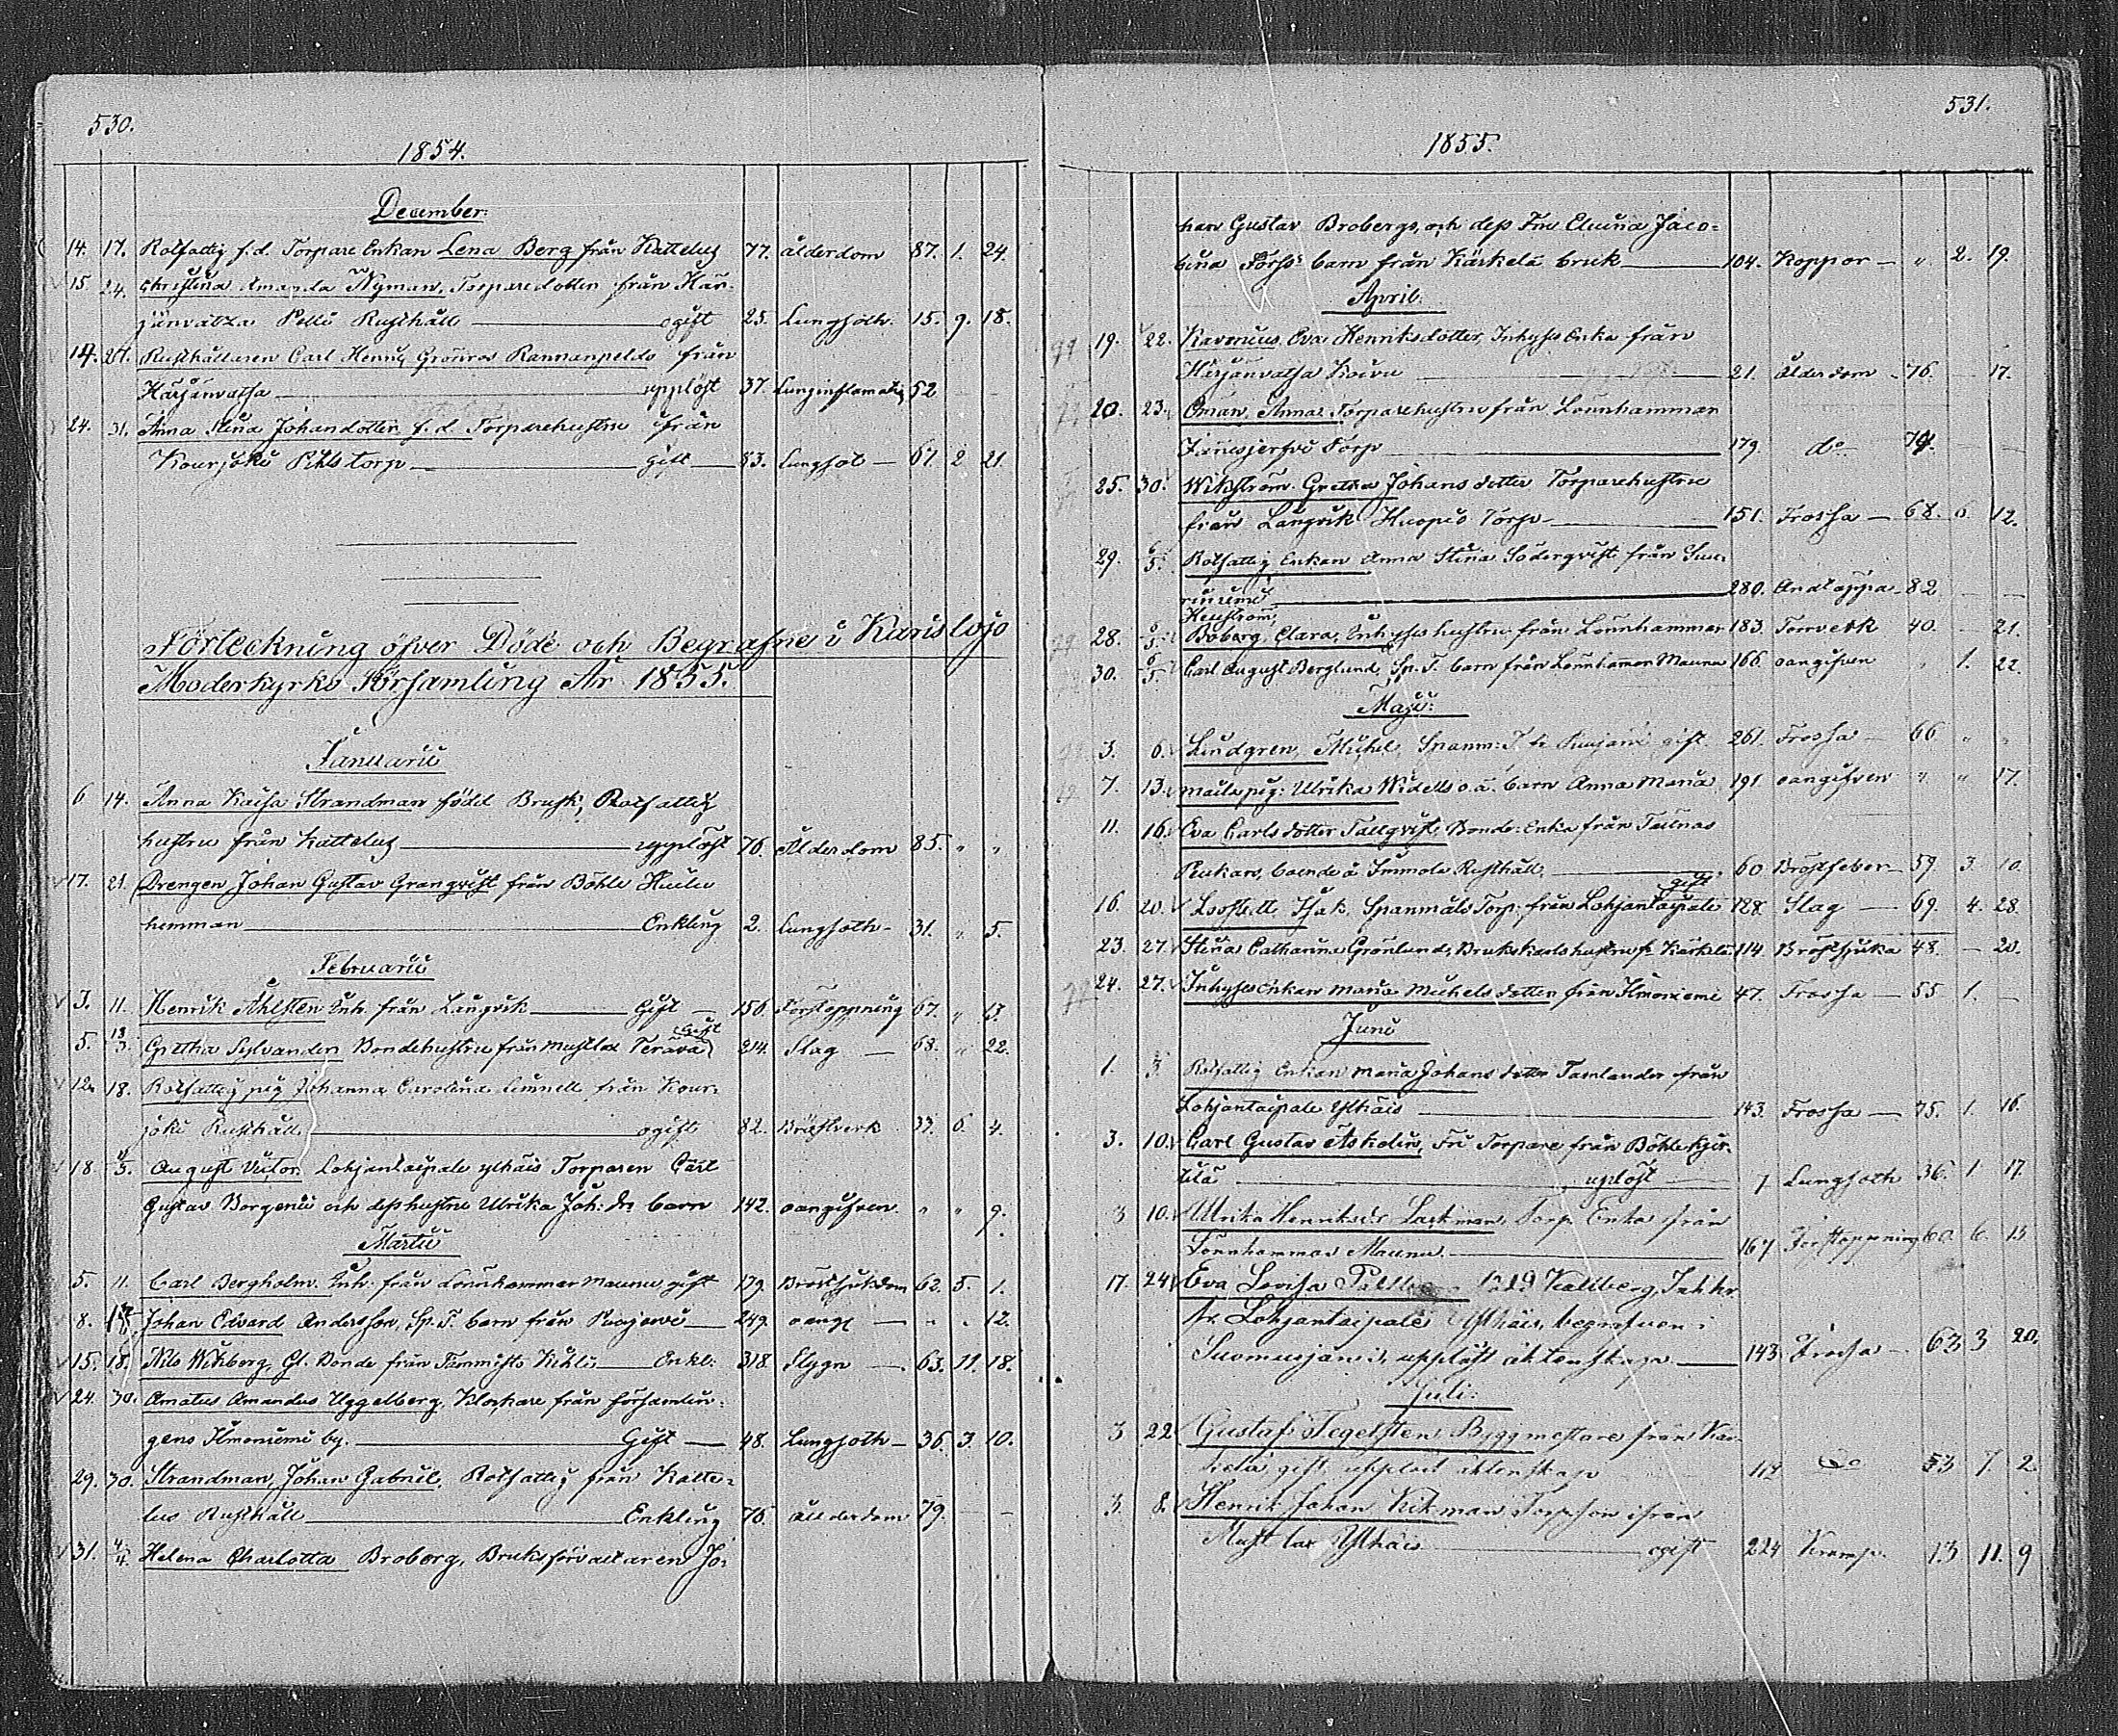 530.
1854.
December.
14. 17. Rotfattig f.d. Torpare Enkan Lena Berg från Kattelus 77. ålderdom 87. 1. 24.
15 24. Christina Amanda Nyman, Torparedotter från Här-
jänvatsa Rusthåll ogift 25. Lungsoth. 15. 9. 18.
14. Rusthållaren Carl Henric Grönros från
Härjänvatsa upplöst 37. Lunginflamation 52
24. 31. Anna Stina Johansdotter f.d. Torparehustru ifrån
Kourjoki torp gift 83. Lungsot 67. 2 21
Förteckning öfver Döde och Begrafne i Karislojo
Moderkyrko Församling År 1855.
Januarii
6. 14. Anna Kaisa Strandman född Brusk, Rotfattig
hustru från Kattelus upplöst 76. Ålderdom 85. " "
17. 21. Drengen Johan Gustav Granqvist från Böhle
hemman Enkling 2. Lungsoth 31. " 5.
Februarii
3. 11. Henrik Ahlsten Inh. från Långvik Gift 156 Förstoppning 67. " 13.
Gift
5. Gretha Sylvander Bondehustru från Mustlax Terävä 214. Slag 68. " 22.
12. 18. Rotfattig pig Johanna Carolina Linnell från Kour-
joki Rusthåll ogift 82. Bröstverk 37. 6. 4.
18. August Victor Lohjantaipale ylhäis Torparen Carl
Gustav Borgenii och dess hustru Ulrika Joh: dr barn 142. oangifven " " 9.
Martii
5. 11. Carl Bergholm Inh. från Lönnhammar Maunu gift 179. Bröstsjukdom 62. 5. 1.
8. Johan Edvard Andersson, Sp. T. barn från 249. oangf " " 12.
15. 18. Nils Wikberg, Gl. Bonde från Tammisto Enkl: 318. Flygn 63. 11. 18.
24. 30. Amatus Amandus Uggelberg, Klockare från församlin-
gens Ilmoniemi by. Gift 48. Lungsoth 36. 3. 10.
29. 30. Strandman, Johan Gabriel, Rotfattig från Katte-
lus Rusthåll Enkling 76. ålderdom 79. — —
31. 4/4. Helena Charlotta Broberg, Bruksförvaltaren Jo-
531.
1855.
han Gustav Brobergs, och dess Fru Jaco-
bina barn från Kärkelä bruk 104. Koppor " 2. 19.
April.
19. 22. Eva Henriksdotter, Inhyses Enka från
Härjänvatsa Koivu 21. Ålderdom 76. 17.
20. 23. Öman, Anna Torparehustru från Lönnhammar
Torp 179. do 74. — —
25. 30. Wikström Gretha Johansdotter Torparehustru
från Långvik Torp 151. Frossa 68. 6. 12.
29. 6/5. Rotfattig Enkan Anna Stina Söderqvist från Suu-
riniemi 280. Andtäppa 82 — —
28. Boberg, Clara, Inhyses hustru från Lönnhammar 183. Torrverk 40. — 21.
30. Carl August Berglund, Sp. T. barn från Lönnhammar Maunu 166. oangifven " 1. 22.
Maji:
3. 6. Lindgren, Michel, Spanm: T. fr gift 261. Frossa 66 " "
7. 13. pig: Ulrika Widells o.ä. barn Anna Maria 191 oangifven " " 17.
11. 16. Eva Carlsdotter Tallqvist, Bonde-Enka från
boende å Immola Rusthåll 60 Bröstfeber 59. 3. 10.
gift
16. 20. Isak, Spanmåls Torp. från Lohjantaipale 128 Slag 69. 4. 28.
23. 27. Stina Catharina Grönlund, Brukskarls hustru fr Kärkelä 114. Bröstsjuka 48. — 20.
24. 27. Inhyses enkan Maria Michelsdotter från Ilmoniemi 47. Frossa 55 1. —
Juni
1. 3 Rotfattig Enkan Maria Johansdotter Tamlander från
Lohjantaipale Ylhäis 143. Frossa 75. 1. 16.
3. 10. Carl Gustav Askelin, Fri Torpare från Böhle
uplöst 7 Lungsoth 36. 1 17
3 10. Ulrika Henriksdr Lackman, Torp. Enka från
Lönnhammar Maunu 167 Förstoppning 60 6. 13
17. 24 Eva Lovisa Kallberg, Inh hr
fr. Lohjantaipale Ylhäis, begrafven i
Suomusjärvi, upplöst äktenskap 143 Frossa 63 3 20.
Juli:
3 22 Gustaf Tegelsten Byggmestare från Kär-
kelä gift upplöst äktenskap 117 do 53 7. 2
3 8. Henrik Johan Vikman Torpson ifrån
Mustlax Ylhäis ogift 224 Kramp. 13 11. 9